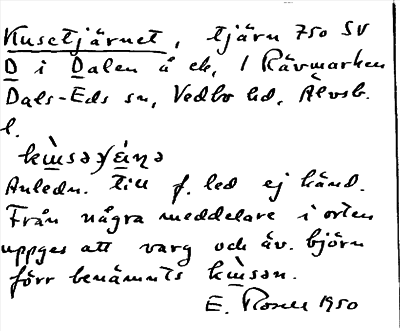 Kusetjärnet, tjärn 750 SV
D i Dalen å ek, / Rävmarken
Dals-Eds sn, Vedbo hd, Älvsb.
l.
Anledn. till f. led ej känd.
Från några meddelare i orten
uppges att varg och äv. björn
förr benämnts kẁsən.
E. 1950